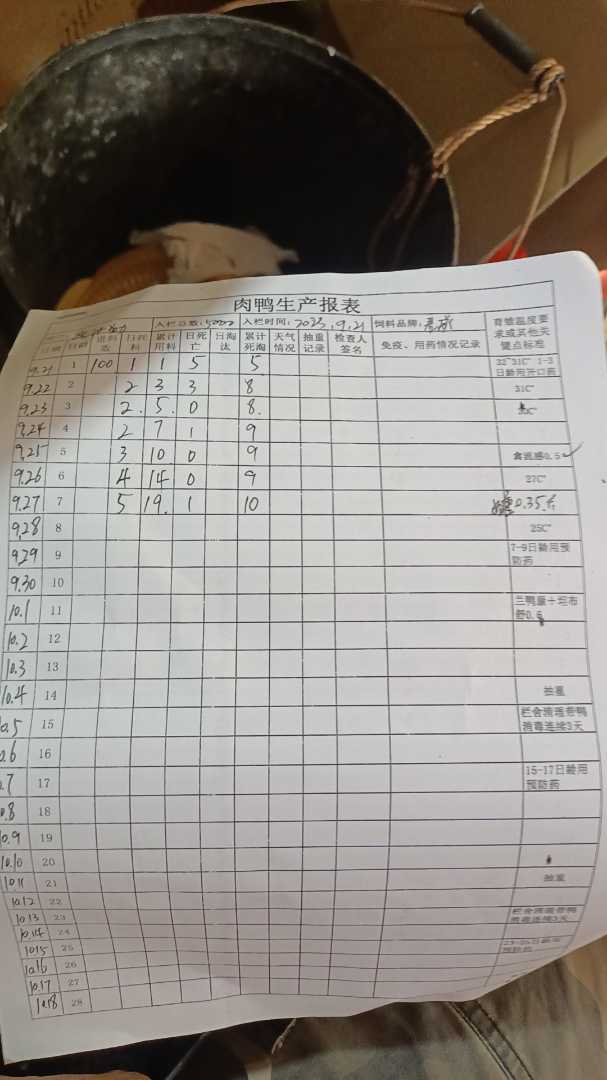 肉鸭生产报表
入栏总数:5000 入栏时间:2023.9.21 饲料品牌:
育雏温度要求或其他关键点标准
日期 日龄 进料 日耗料 累计用料 日死亡 日淘汰 累计死淘 天气情况 抽重记录 检查人签名 免疫、用药情况记录
9.21 1 100 1 1 5 5 32~31C° 1-3日龄用开口药
9.22 2 2 3 3 8 31C°
9.23 3 2. 5. 0 8.
9.24 4 2 7 1 9
9.25 5 3 10 0 9 禽流感0.5
9.26 6 4 14 0 9 27C°
9.27 7 5 19. 1 10 0.35
9.28 8 25C°
9.29 9 7-9日龄用预防药
9.30 10
10.1 11 三鸭康+坦布舒0.6
10.2 12
10.3 13
10.4 14 抽重
10.5 15 栏舍清理带鸭消毒连续3天
0.6 16
.7 17 15-17日龄用预防药
0.8 18
10.9 19
10.10 20
10.11 21 抽重
10.12 22
10.13 23 栏舍清理带鸭消毒连续3天
10.14 24
10.15 25
10.16 26
10.17 27
10.18 28